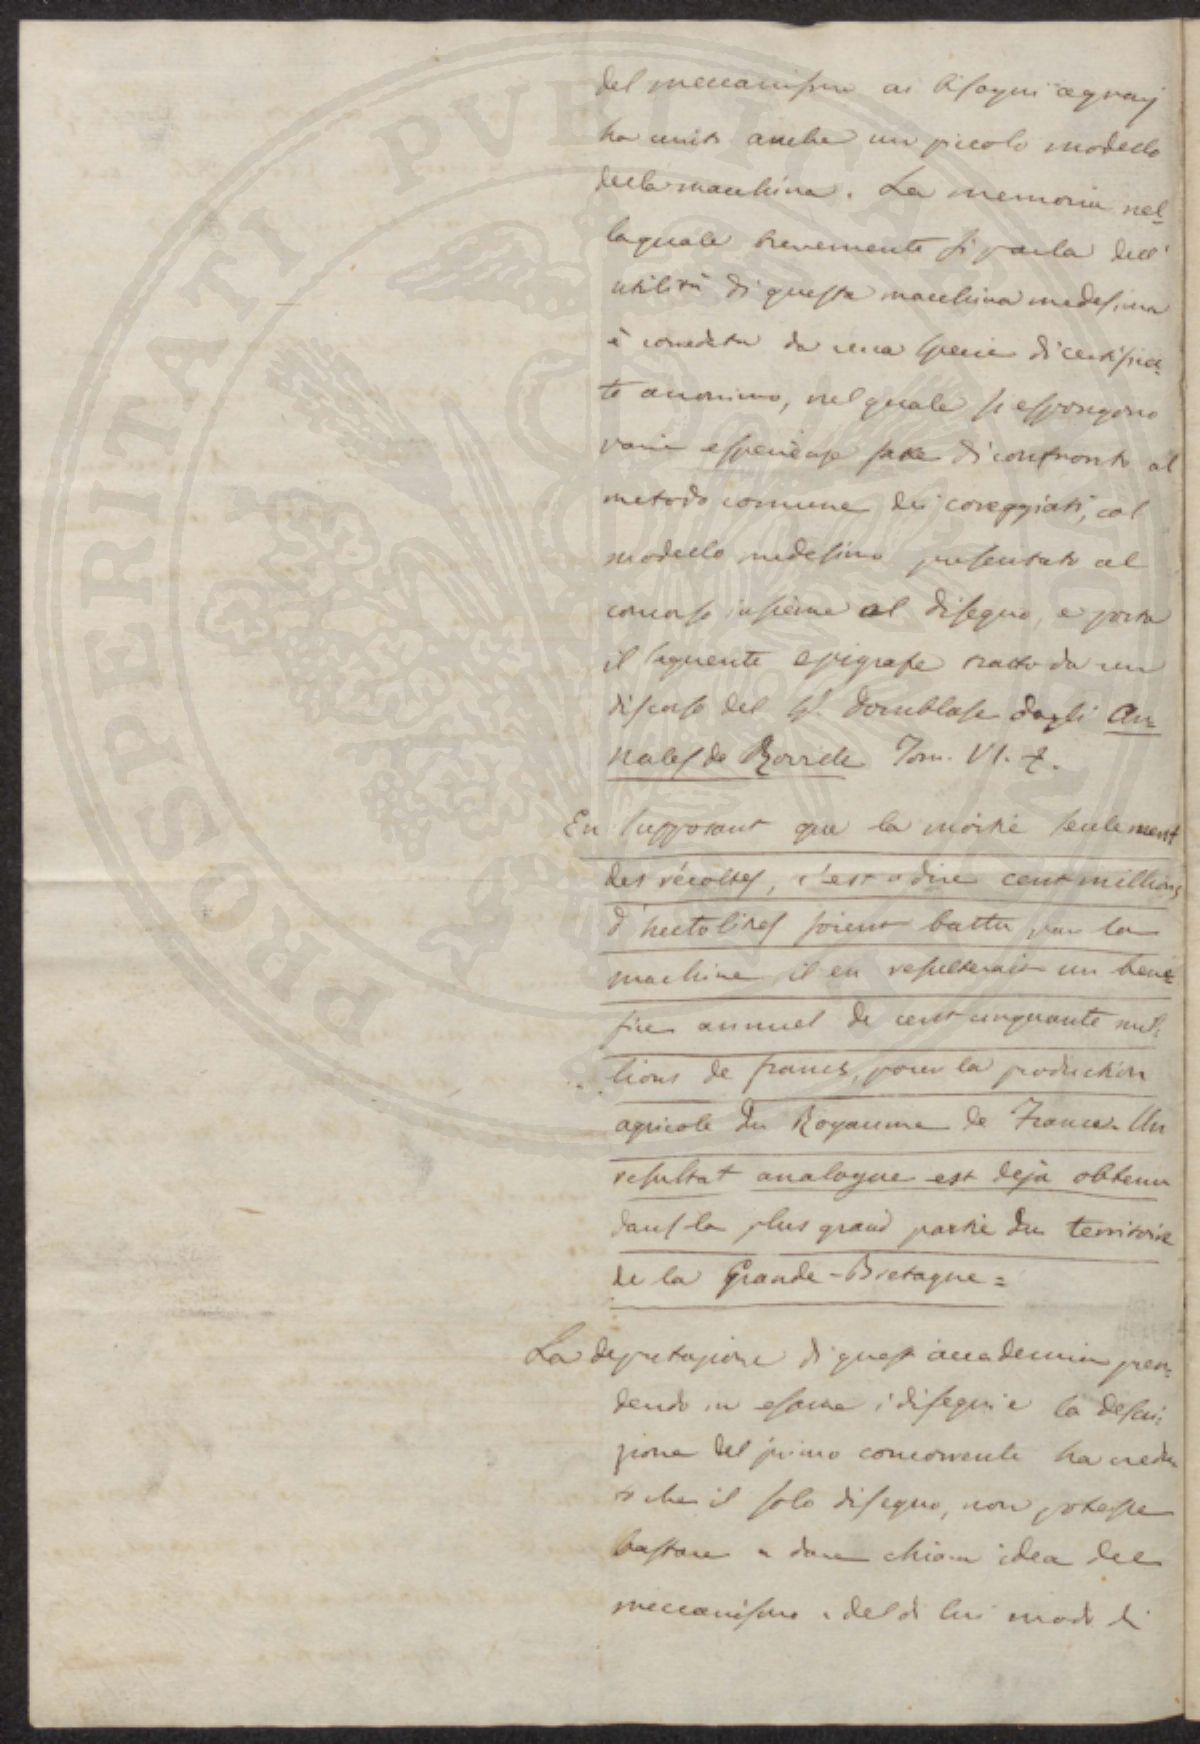 del meccanismo ai bisogni agrarj
ha unito anche un piccolo modello
della macchina. La memoria nel-
la quale brevemente si parla dell'
utilità di questa macchina medesima
è corredata da una specie di certifica-
to anonimo, nel quale si espongono
varie esperienze fatte di confronto al
metodo comune dei coreggiati, col
modello medesimo presentato al
concorso insieme al disegno, e porta
il seguente epigrafe tratto da un
discorso del Sr. Domblasle dagli An-
nales de Roville Tom. VI.
En supposant que la moitié seulement
des récoltes, c'est a dire cent millions
d'hectolitres soient battu par la
machine il en resulterait un bene-
fice annuel de cent cinquante mil-
lions de francs, pour la production
agricole du Royaume de France. Un
resultat analogue est deja obtenu
dans la plus grand partie du territoire
de la Grande-Bretagne =
La deputazione di quest'accademia pren-
dendo in esame i disegni e la descri-
zione del primo concorrente ha credu-
to che il solo disegno, non potesse
bastare a dare chiara idea del
meccanismo e del di lui modo di
PROSPERITATI PVBLICAE